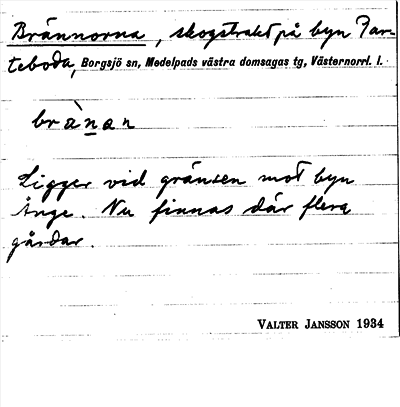 Brännorna, skogstrakt på byn Par-
teboda, Borgsjö sn, Medelpads västra domsagas tg, Västernorrl. l.
brànan
Ligger vid gränsen mot byn
Ånge. Nu finnas där flera
gårdar.
VALTER JANSSON 1934